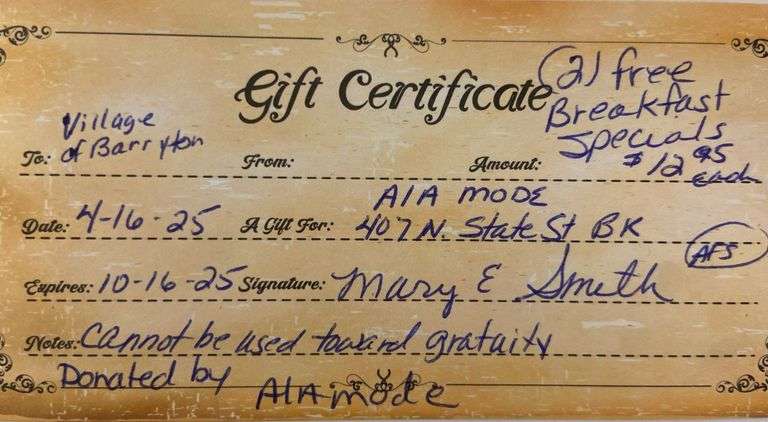 Gift Certificate
(2) free
Breakfast
Specials
$12.95
each
To: Village
of Barryton
From:
Amount:
Date: 4-16-25
A Gift For: A1A MODE
407 N. State St BK
AFS
Expires: 10-16-25
Signature: Mary E Smith
Notes: Cannot be used toward gratuity
Donated by A1A mode